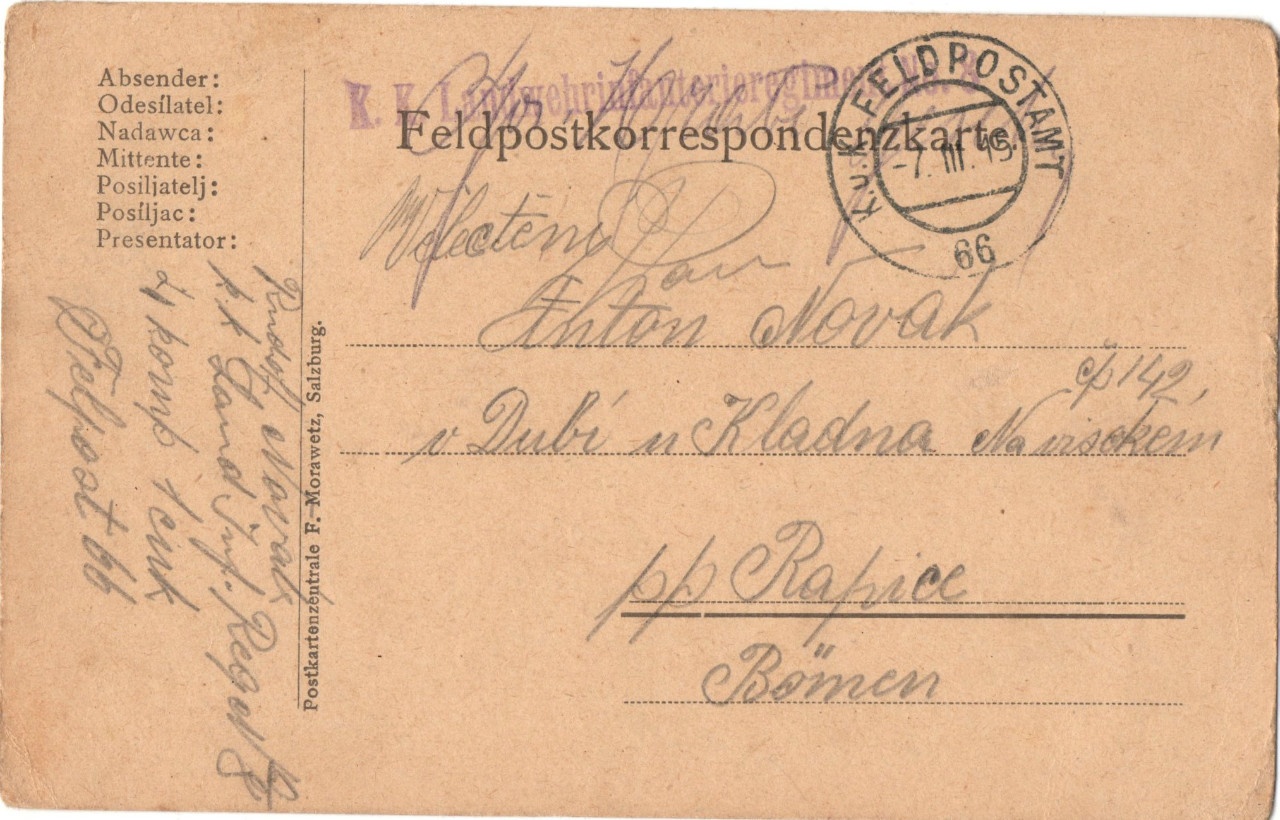 Absender:
Odesílatel:
Nadawca:
Mittente:
Posiljatelj:
Posíljac:
Presentator:
Rudolf Novak
k.k Land Inf. Reg N 8
komp 1
Felpost 66
Postkartenzentrale F. Morawetz, Salzburg.
K. K. Landwehrinfanterieregiment No. 8
Feldpostkorrespondenzkarte.
K.u.K. FELDPOSTAMT
-7. III. 15
66
Velectěný
Pan
Anton Novak
čp 142,
v Dubí u Kladna Na visokém
pp Rapice
Bömen